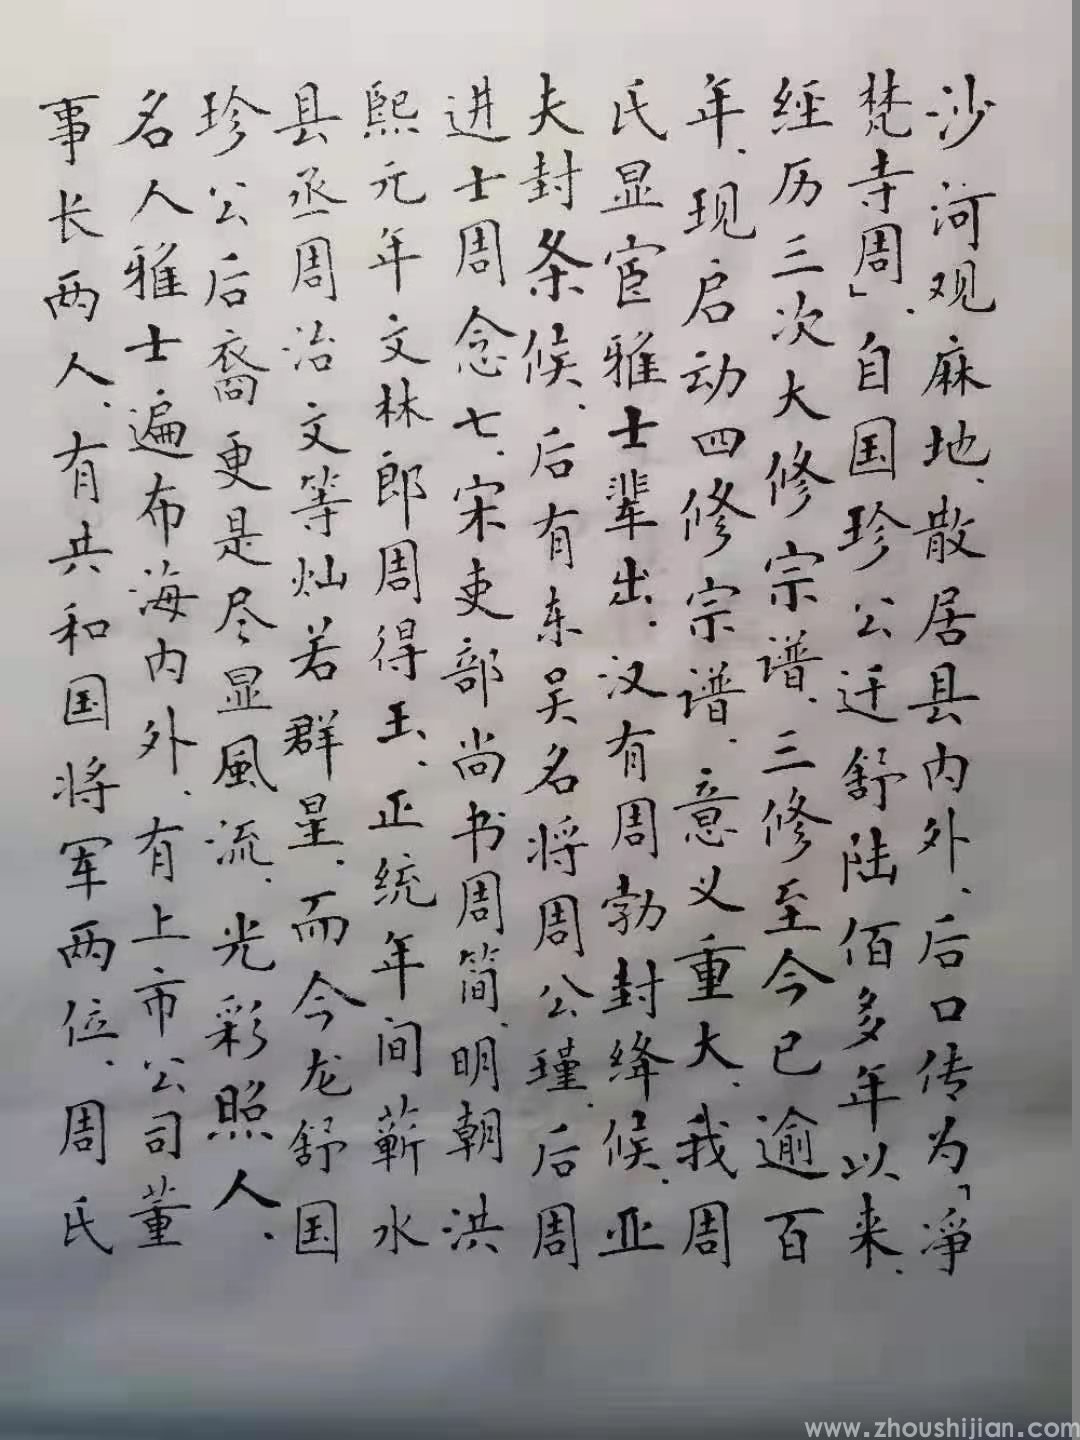 沙河观麻地、散居县内外、后口传为「净
梵寺周」、自国珍公迁舒陆佰多年以来、
经历三次大修宗谱、三修至今已逾百
年、现启动四修宗谱、意义重大、我周
氏显宦雅士辈出、汉有周勃封绛候、亚
夫封条候、后有东吴名将周公瑾、后周
进士周念七、宋吏部尚书周简、明朝洪
熙元年文林郎周得玉、正统年间蕲水
县丞周治文等灿若群星、而今龙舒国
珍公后裔更是尽显風流、光彩照人、
名人雅士遍布海内外、有上市公司董
事长两人、有共和国将军两位、周氏
www.zhoushijian.com